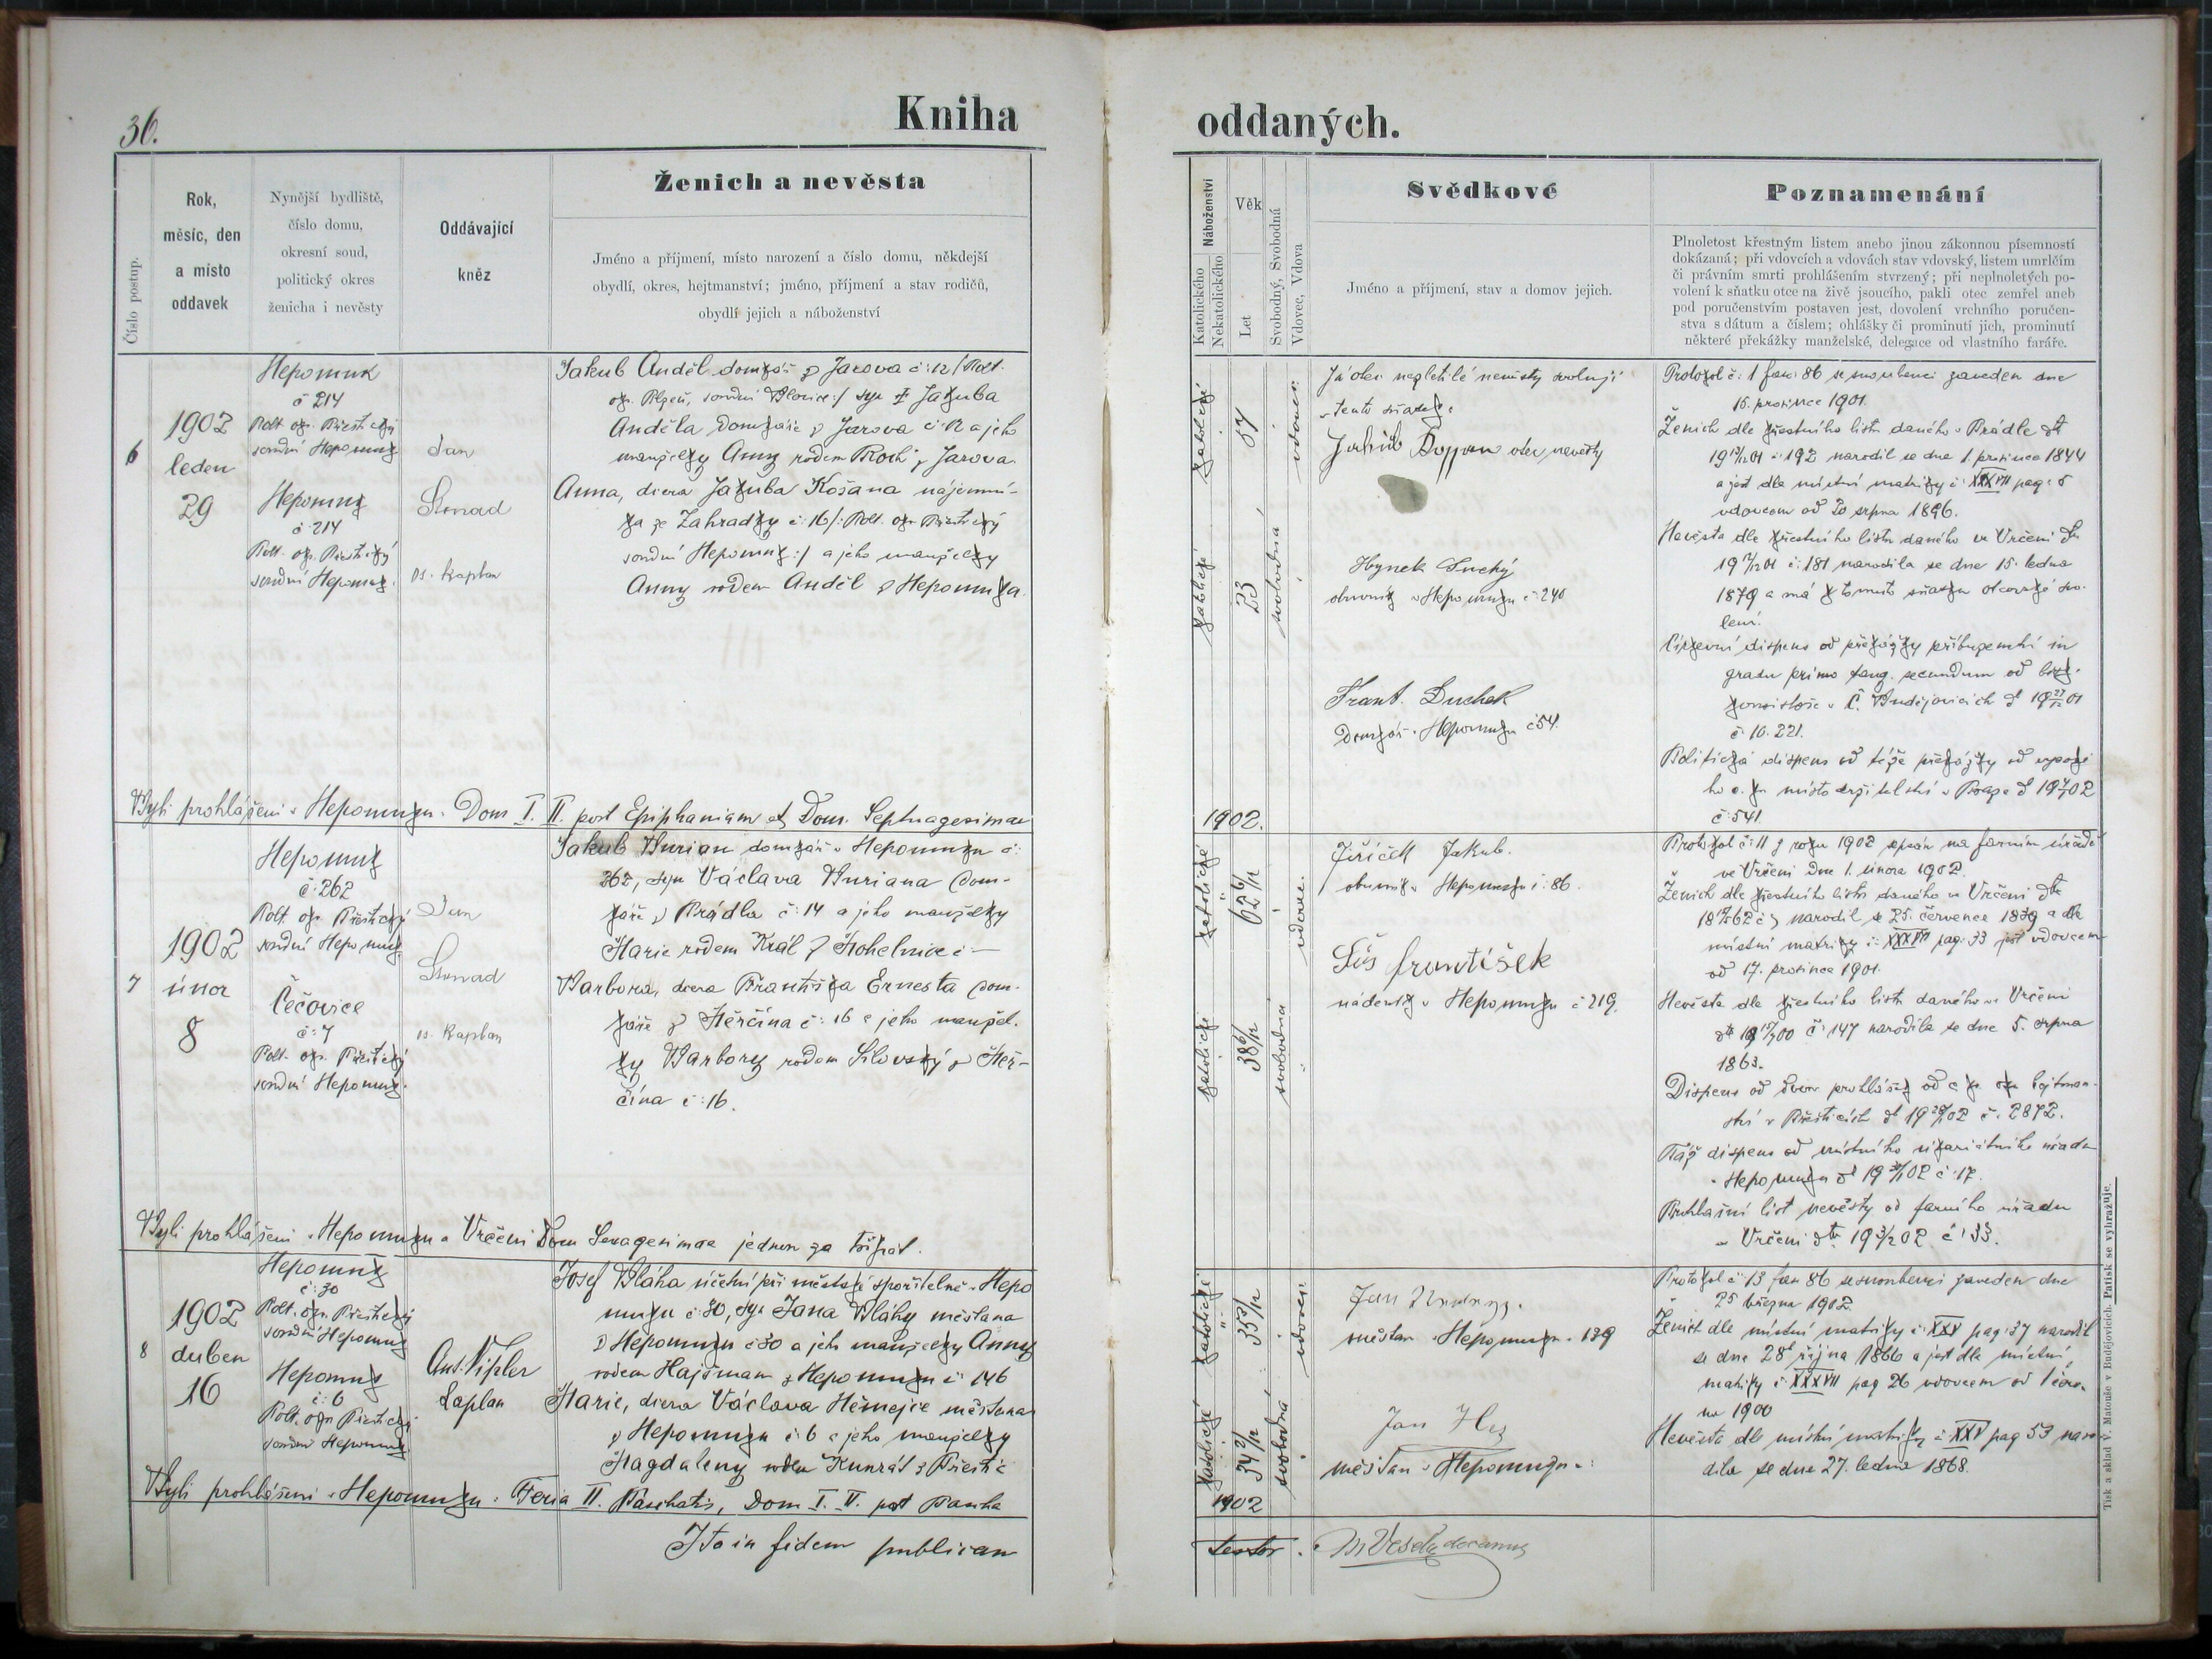 36.
Kniha
Číslo postup.
Rok,
měsíc, den
a místo
oddavek
Nynější bydliště,
číslo domu,
okresní soud,
politický okres
ženicha i nevěsty
Oddávající
kněz
Ženich a nevěsta
Jméno a příjmení, místo narození a číslo domu, někdejší
obydlí, okres, hejtmanství; jméno, příjmení a stav rodičů,
obydlí jejich a náboženství
6
1902
leden
29
Nepomuk
č 214
Polt. okr. Přestický
soudní Nepomuk
Nepomuk
č 214
Polt. okr. Přestický
soudní Nepomuk.
Jan
os. kaplan
Jakub Anděl domkář z Jarova č: 12 /: Polt.
okr. Plzeň, soudní Blovice :/ syn † Jakuba
Anděla domkáře z Jarova č 12 a jeho
manželky Anny rodem z Jarova.
Anna, dcera Jakuba Košana nájemní-
ka ze Zahradky č: 16 /: Polt. okr. Přestický
soudní Nepomuk :/ a jeho manželky
Anny rodem Anděl z Nepomuka.
Byli prohlášeni v Nepomuku. Dom. I. II. post Epiphaniam et Dom. Septuagesimae
7
1902
únor
8
Nepomuk
č: 262
Polt okr. Přestický
soudní Nepomuk.
Čečovice
č: 7
Polt. okr. Přestický
soudní Nepomuk.
Jan
os. kaplan
Jakub Burian domkář v Nepomuku č:
262, syn Václava Buriana dom-
káře z Prádla č: 14 a jeho manželky
Marie rodem Král z Mohelnice č —
Barbora, dcera Františka Ernesta dom-
káře z Měrčína č: 16 a jeho manžel-
ky Barbory rodem Silovský z Měr-
čína č: 16.
Byli prohlášeni v Nepomuku a Vrčeni Dom Sexagesimae jednou za třikrát.
8
1902
duben
16
Nepomuk
č: 30
Polt. okr. Přestický
soudní Nepomuk
Nepomuk
č: 6
Polt. okr. Přestický
soudní Nepomuk.
Ant. Nipler
kaplan
Josef Bláha účetní při městské spořitelně v Nepo
muku č: 30, syn Jana Bláhy měšťana
z Nepomuku č 30 a jeho manželky Anny
rodem Hajšman z Nepomuku č: 146
Marie, dcera Václava Němejce měšťana
z Nepomuku č: 6 a jeho manželky
Magdaleny rodem Kunrát z Přeštic
Byli prohlášeni v Nepomuku: Feria II. Paschatis, Dom I. II. post Pascha
Ita in fidem publicam
oddaných.
Náboženství
Katolického
Nekatolického
Věk
Let
Svobodný, Svobodná
Vdovec, Vdova
Svědkové
Jméno a příjmení, stav a domov jejich.
Poznamenání
Plnoletost křestným listem anebo jinou zákonnou písemností
dokázaná; při vdovcích a vdovách stav vdovský, listem umrlčím
či právním smrti prohlášením stvrzený; při neplnoletých po-
volení k sňatku otce na živě jsoucího, pakli otec zemřel aneb
pod poručenstvím postaven jest, dovolení vrchního poručen-
stva s dátum a číslem; ohlášky či prominutí jich, prominutí
některé překážky manželské, delegace od vlastního faráře.
katolické
57
vdovec
katolické
23
svobodná
Já otec nezletilé nevěsty svoluji
v tento sňatek:
Jakub otec nevěsty
Hynek Suchý
obuvník v Nepomuku č 240
Frant. Duchek
Domkář v Nepomuku č 54.
Protokol č: 1 fasc 86 se snoubenci zaveden dne
15. prosince 1901.
Ženich dle křestního listu daného v Prádle dto
č 192 narodil se dne 1. prosince 1844
a jest dle místní matriky č: XXXVII pag: 5
vdovcem od 20 srpna 1896.
Nevěsta dle křestního listu daného ve Vrčeni dto
č: 181 narodila se dne 15. ledna
1879 a má k tomuto sňatku otcovské svo-
lení.
Církevní dispens od překážky příbuzenství in
gradu primo tang. secundum od bisk.
konsistoře v Č. Budějovicích
č. 10.221.
Politická dispens od téže překážky od vysoké
ho c. k. místodržitelství v Praze
č: 541.
1902.
katolické
62 6/12
vdovec.
katolické
38 6/12
svobodná
Jiříček Jakub.
obuvník v Nepomuku č: 86.
Šiš František
nádeník v Nepomuku č 219.
Protokol č: 11 z roku 1902 sepsán na farním úřadě
ve Vrčeni dne 1. února 1902.
Ženich dle křestního listu daného ve Vrčeni dto
narodil se 25. července 1839 a dle
místní matriky č: XXXVII pag: 33 jest vdovcem
od 17. prosince 1901.
Nevěsta dle křestního listu daného ve Vrčeni
č: 147 narodila se dne 5. srpna
1863.
Dispens od dvou prohlášek od c. k. okr hejtman-
ství v Přešticích č. 2872.
Táž dispens od místního vikariátního úřadu
v Nepomuku č: 17.
Prohlašní list nevěsty od farního úřadu
ve Vrčeni č: 33.
katolické
35 5/12
vdovec
katolické
34 2/12
svobodná
Jan
měšťan v Nepomuku č. 139
Jan
měšťan v Nepomuku č:
Protokol č: 13 fasc 86 se snoubenci zaveden dne
25 března 1902.
Ženich dle místní matriky č: XXV pag: 37 narodil
se dne 28ho října 1866 a jest dle místní
matriky č: XXXVII pag 26 vdovcem od 1 červ-
na 1900
Nevěsta dle místní matriky č XXV pag 53 naro-
dila se dne 27. ledna 1868.
1902
testor.
M Veselý decanus
Tisk a sklad V. Matouše v Budějovicích. Patisk se vyhražuje.